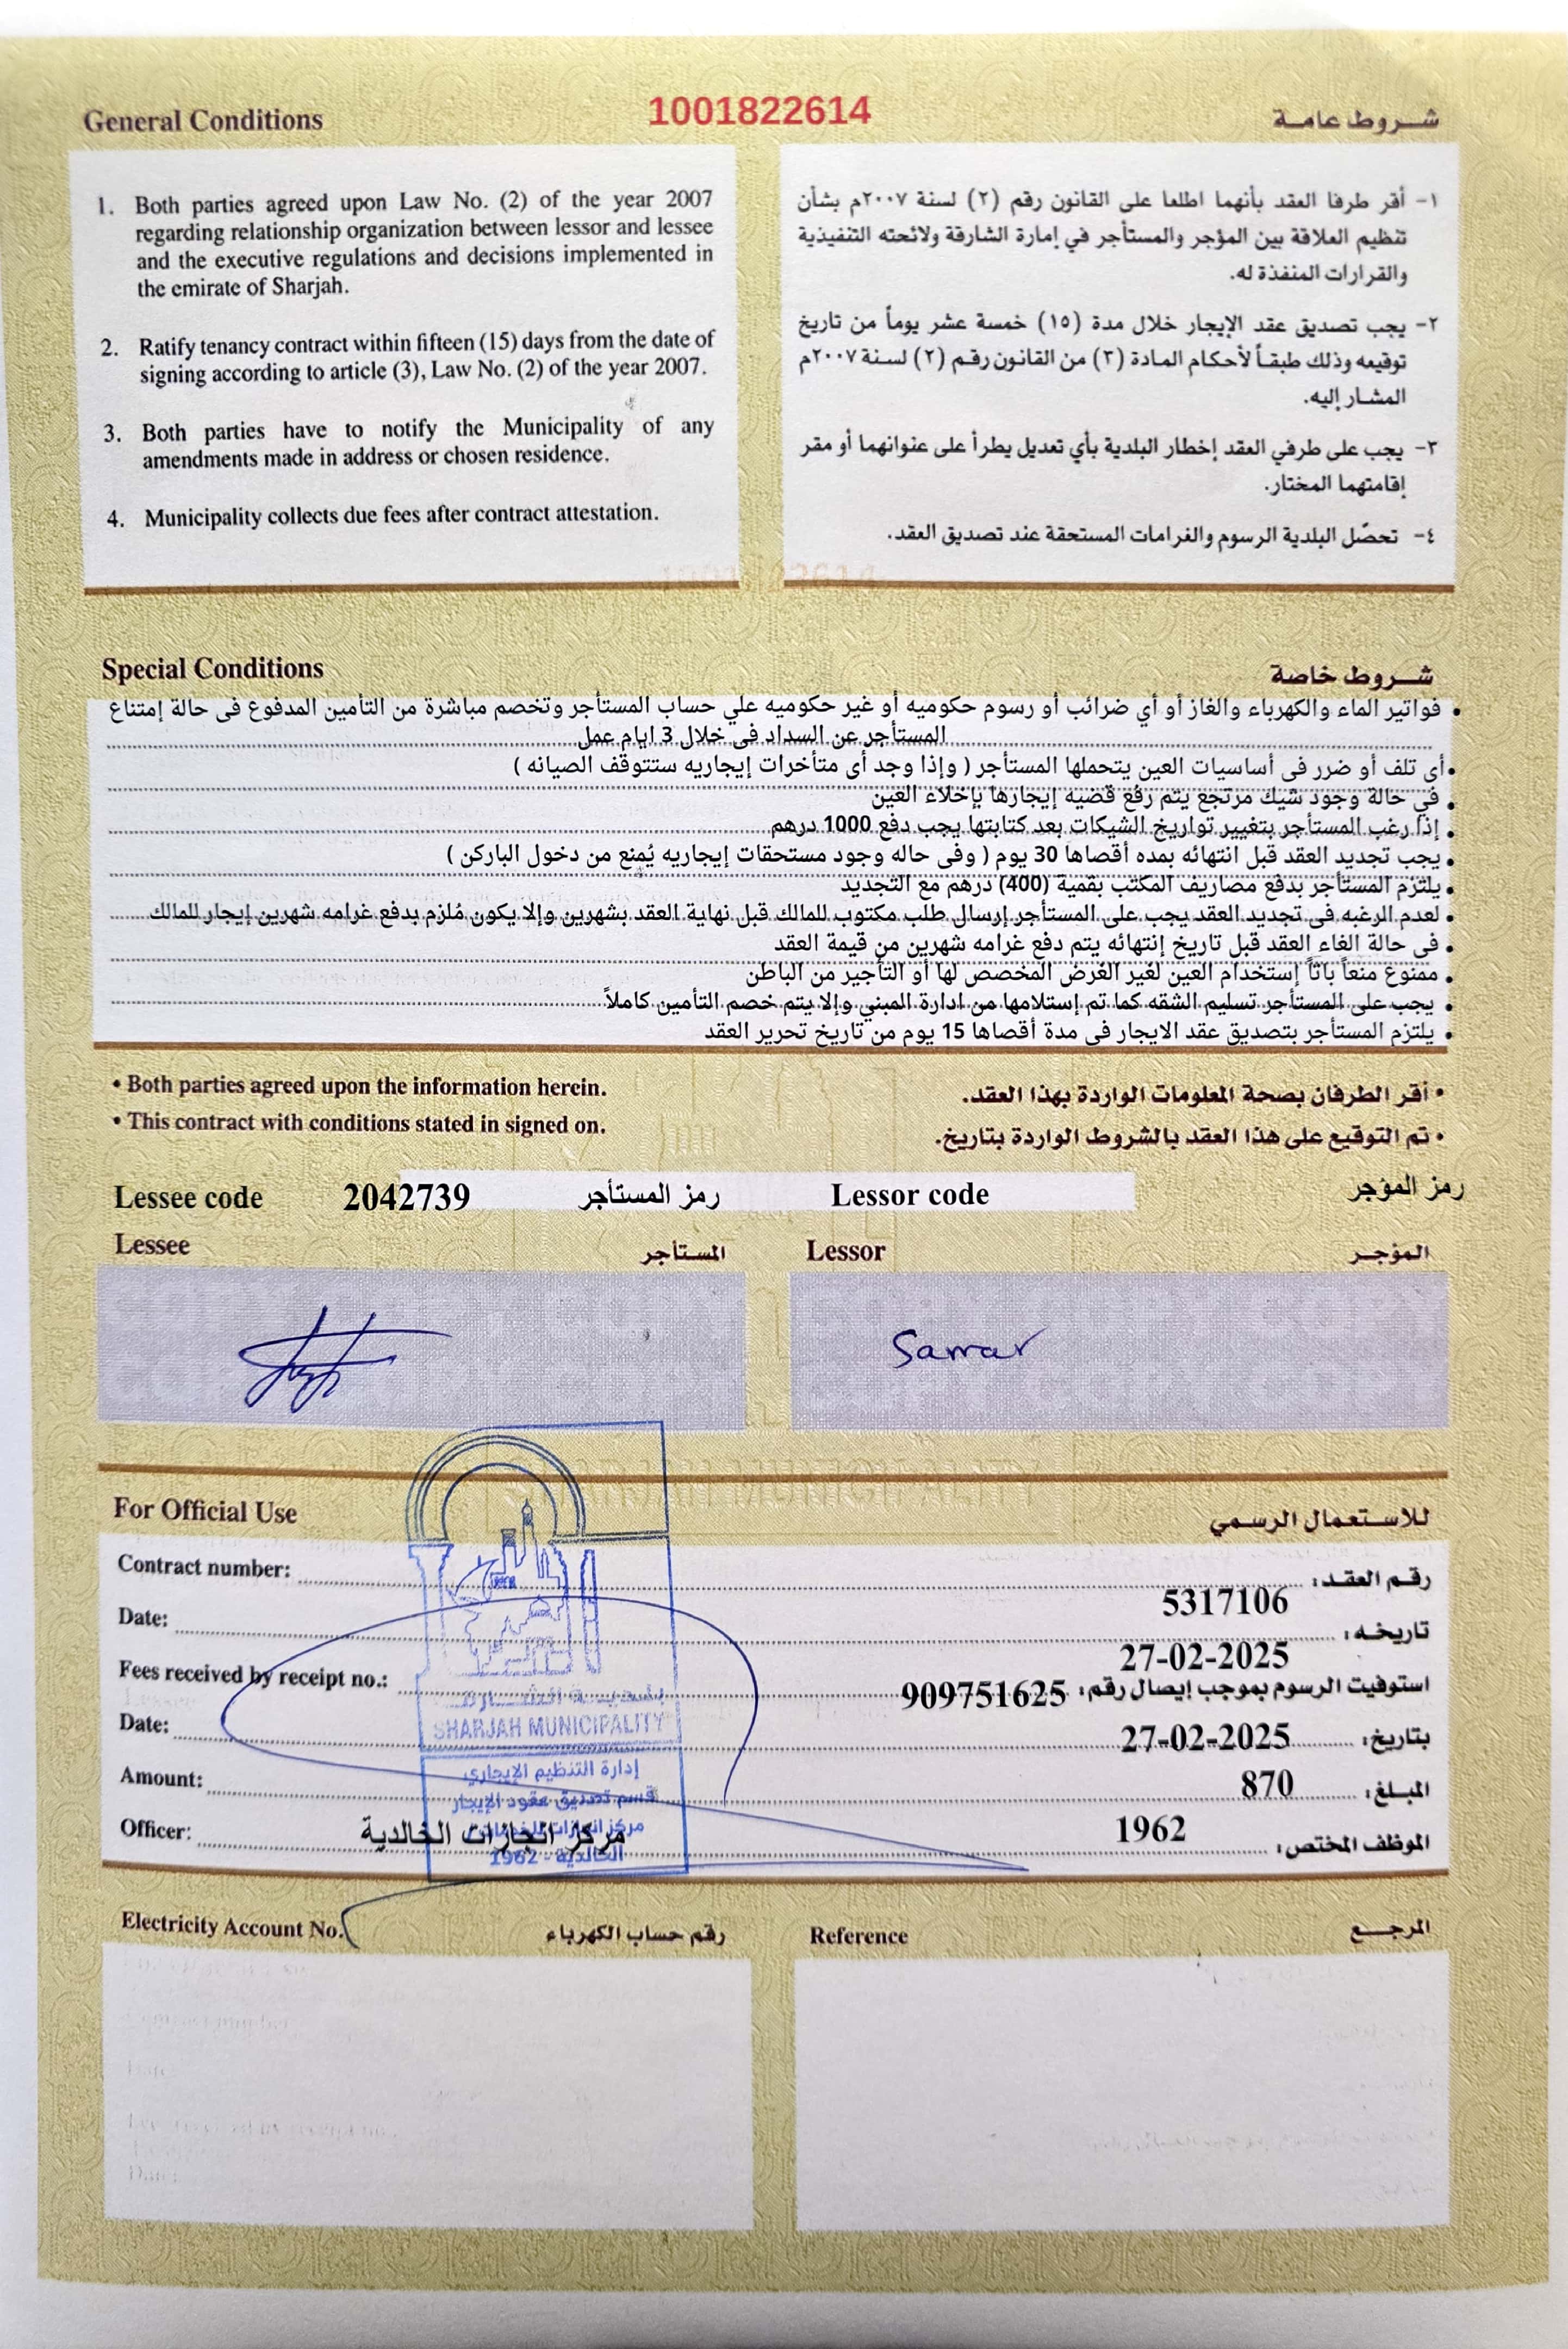 General Conditions
1001822614
شروط عامة
1. Both parties agreed upon Law No. (2) of the year 2007
regarding relationship organization between lessor and lessee
and the executive regulations and decisions implemented in
the emirate of Sharjah.
2. Ratify tenancy contract within fifteen (15) days from the date of
signing according to article (3), Law No. (2) of the year 2007.
3. Both parties have to notify the Municipality of any
amendments made in address or chosen residence.
4. Municipality collects due fees after contract attestation.
١- أقر طرفا العقد بأنهما اطلعا على القانون رقم (٢) لسنة ٢٠٠٧م بشأن
تنظيم العلاقة بين المؤجر والمستأجر في إمارة الشارقة ولائحته التنفيذية
والقرارات المنفذة له.
٢- يجب تصديق عقد الإيجار خلال مدة (١٥) خمسة عشر يوماً من تاريخ
توقيعه وذلك طبقاً لأحكام المادة (٣) من القانون رقم (٢) لسنة ٢٠٠٧م
المشار إليه.
٣- يجب على طرفي العقد إخطار البلدية بأي تعديل يطرأ على عنوانهما أو مقر
إقامتهما المختار.
٤- تحصّل البلدية الرسوم والغرامات المستحقة عند تصديق العقد.
Special Conditions
شروط خاصة
• فواتير الماء والكهرباء والغاز أو أي ضرائب أو رسوم حكوميه أو غير حكوميه علي حساب المستأجر وتخصم مباشرة من التأمين المدفوع فى حالة إمتناع
المستأجر عن السداد فى خلال 3 ايام عمل
• أى تلف أو ضرر فى أساسيات العين يتحملها المستأجر ( وإذا وجد أى متأخرات إيجاريه ستتوقف الصيانه )
• في حالة وجود شيك مرتجع يتم رفع قضيه إيجارها بإخلاء العين
• إذا رغب المستأجر بتغيير تواريخ الشيكات بعد كتابتها يجب دفع 1000 درهم
• يجب تجديد العقد قبل انتهائه بمده أقصاها 30 يوم ( وفى حاله وجود مستحقات إيجاريه يُمنع من دخول الباركن )
• يلتزم المستأجر بدفع مصاريف المكتب بقمية (400) درهم مع التجديد
• لعدم الرغبه فى تجديد العقد يجب على المستأجر إرسال طلب مكتوب للمالك قبل نهاية العقد بشهرين وإلا يكون مُلزم بدفع غرامه شهرين إيجار للمالك
• فى حالة الغاء العقد قبل تاريخ إنتهائه يتم دفع غرامه شهرين من قيمة العقد
• ممنوع منعاً باتاً إستخدام العين لغير الغرض المخصص لها أو التأجير من الباطن
• يجب على المستأجر تسليم الشقه كما تم إستلامها من ادارة المبني وإلا يتم خصم التأمين كاملاً
• يلتزم المستأجر بتصديق عقد الايجار فى مدة أقصاها 15 يوم من تاريخ تحرير العقد
• Both parties agreed upon the information herein.
• This contract with conditions stated in signed on.
• أقر الطرفان بصحة المعلومات الواردة بهذا العقد.
• تم التوقيع على هذا العقد بالشروط الواردة بتاريخ.
Lessee code 2042739 رمز المستأجر
Lessor code رمز المؤجر
Lessee المستأجر
Lessor المؤجر
Samar
SHARJAH MUNICIPALITY
For Official Use
للاستعمال الرسمي
Contract number: 5317106 رقم العقد:
Date: 27-02-2025 تاريخه:
Fees received by receipt no.: 909751625 استوفيت الرسوم بموجب إيصال رقم:
Date: 27-02-2025 بتاريخ:
Amount: 870 المبلغ:
Officer: مركز انجازات الخالدية 1962 الموظف المختص:
بلدية الشارقة
SHARJAH MUNICIPALITY
إدارة التنظيم الإيجاري
قسم تصديق عقود الإيجار
مركز انجازات للخدمات
الخالدية - 1962
Electricity Account No. رقم حساب الكهرباء
Reference المرجع